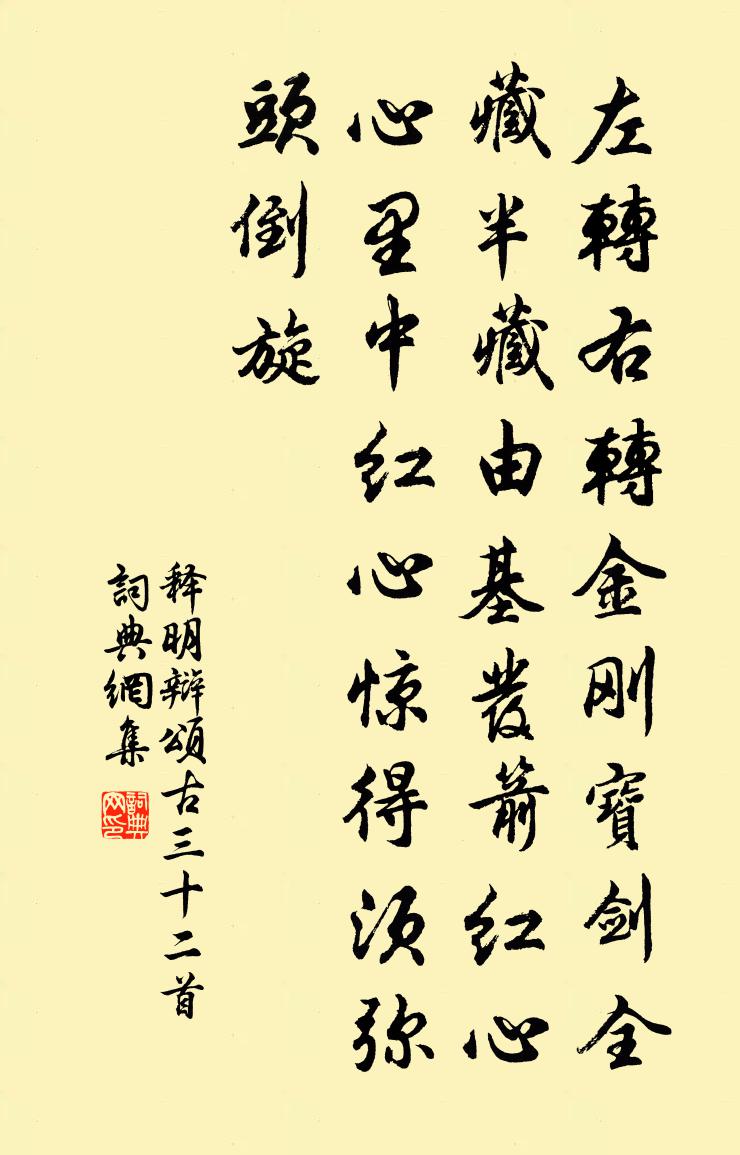 左轉右轉金刚寶劍全
藏半藏由基發箭红心
心里中红心惊得须弥
頭倒旋
释明辯頌古三十二首
詞典網集
詞典网印